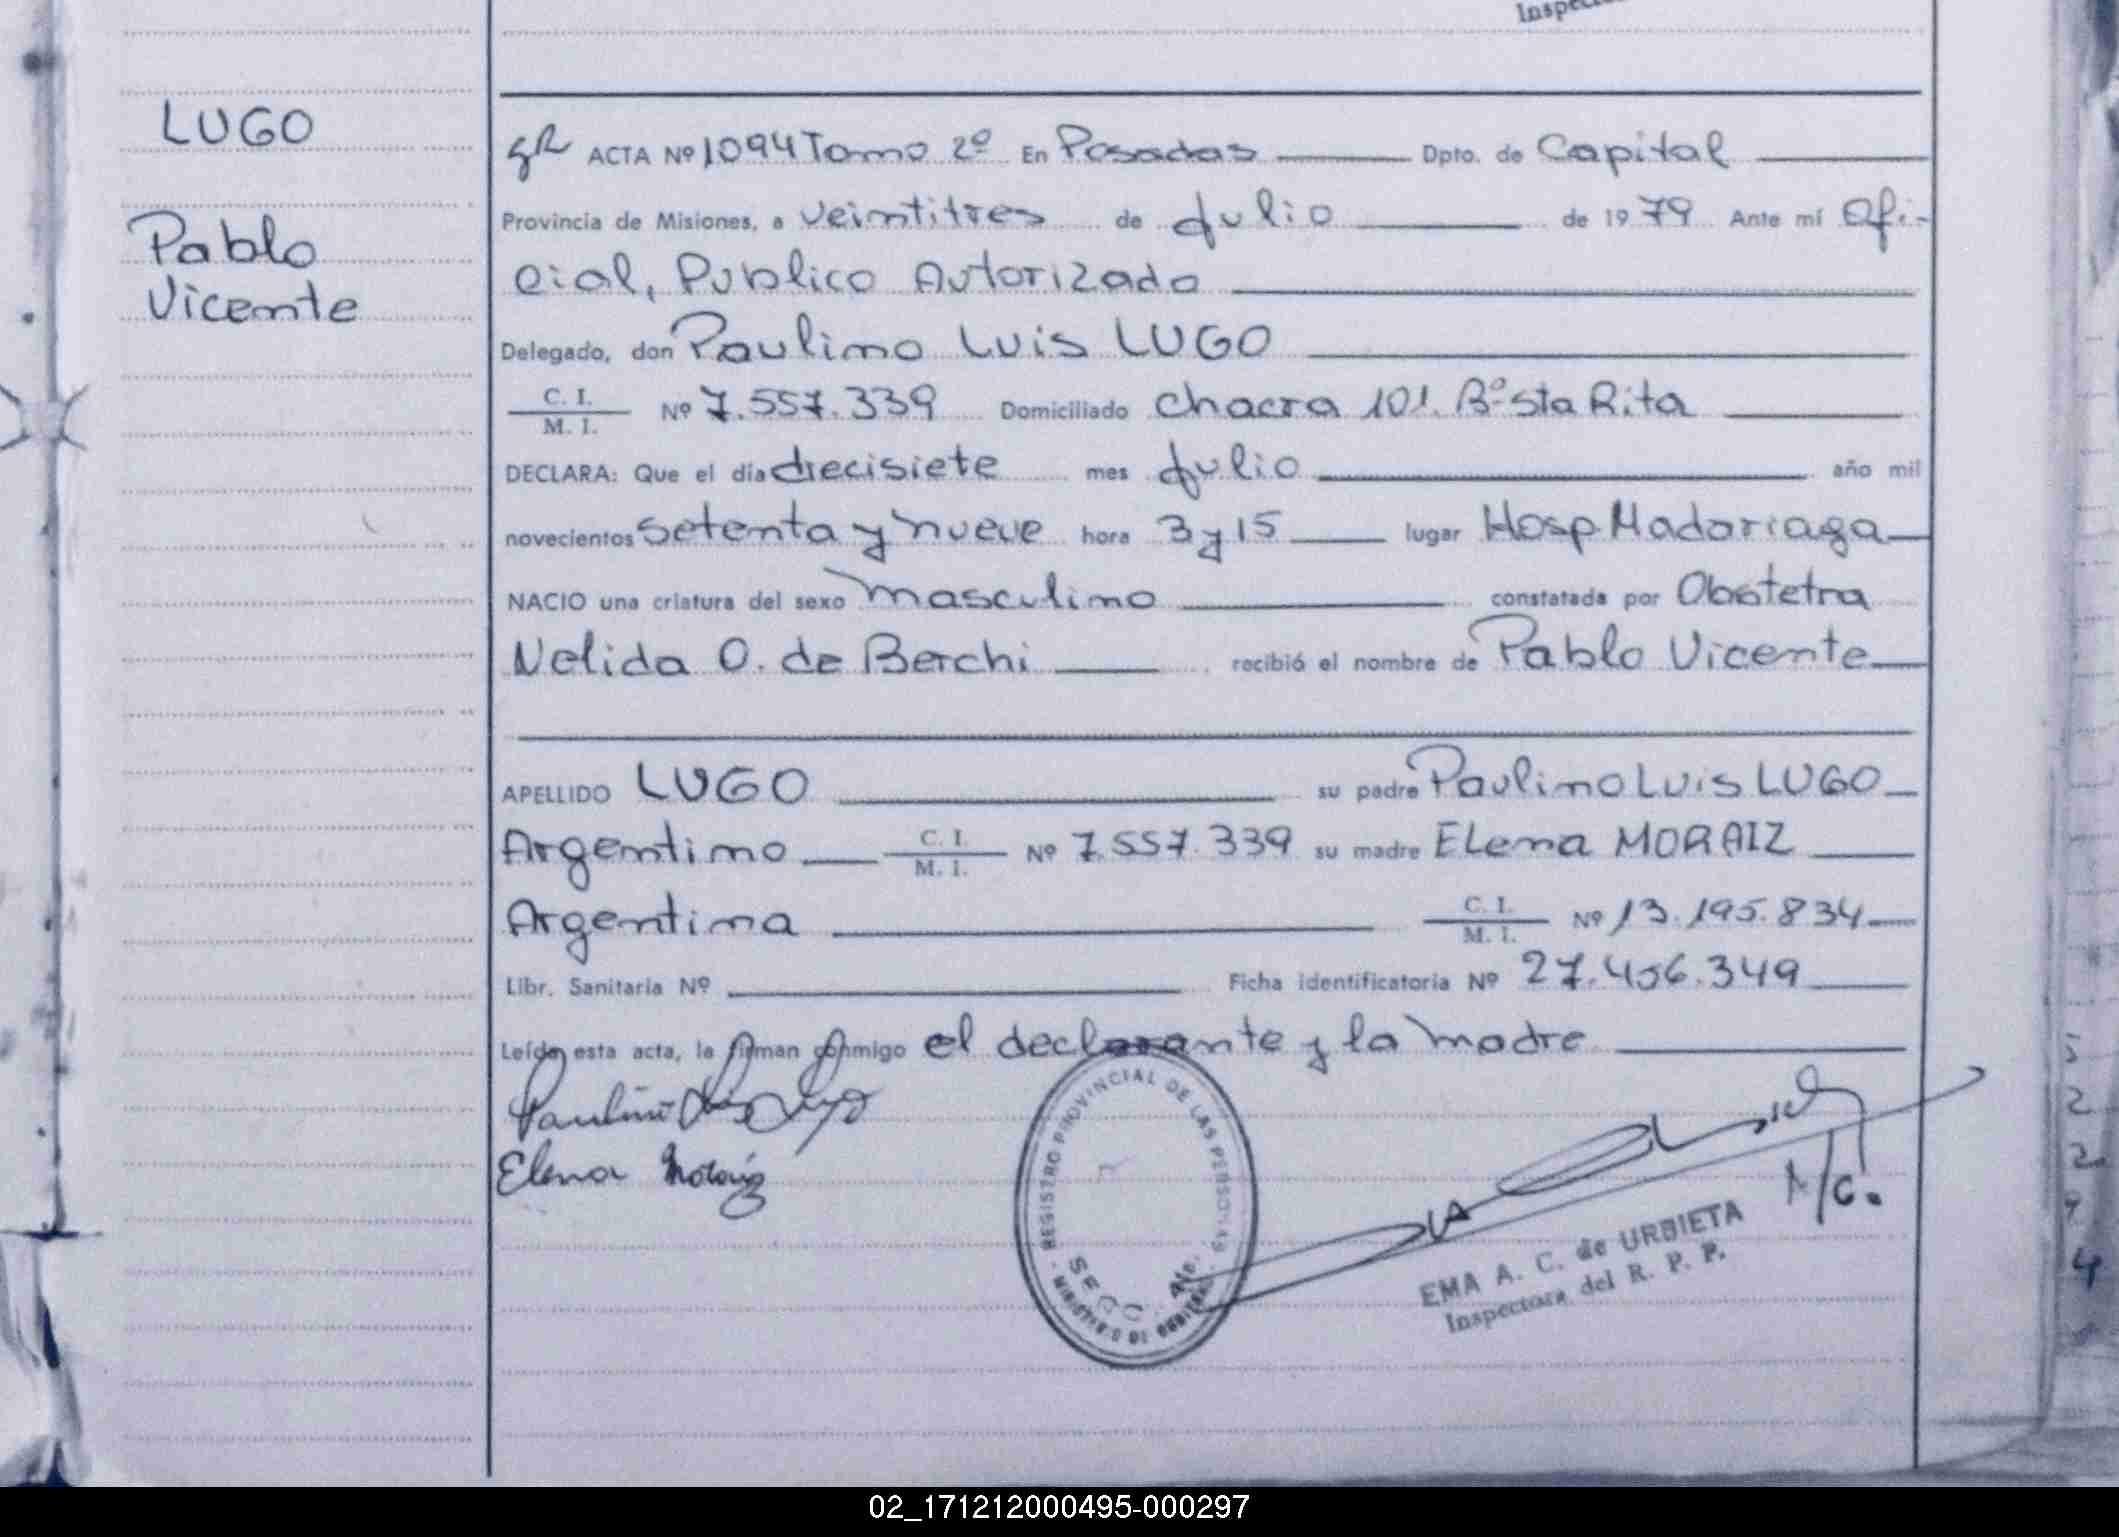 Inspec
LUGO
Pablo
Vicente
ACTA Nº 1094 Tomo 2º En Posadas Dpto. de Capital
Provincia de Misiones, a veintitres de Julio de 1979 Ante mí Ofi-
cial, Publico Autorizado
Delegado, don Paulino Luis LUGO
C. I.
M. I. Nº 7.557.339 Domiciliado Chacra 101. Bº Sta Rita
DECLARA: Que el día diecisiete mes Julio año mil
novecientos setenta y nueve hora 3 y 15 lugar Hosp Madariaga
NACIO una criatura del sexo masculino constatada por Obstetra
Nelida O. de Berchi recibió el nombre de Pablo Vicente
APELLIDO LUGO su padre Paulino Luis LUGO
Argentino C. I. M. I. Nº 7.557.339 su madre Elena MORAIZ
Argentina C. I. M. I. Nº 13.195.834
Libr. Sanitaria Nº Ficha identificatoria Nº 27.456.349
Leída esta acta, la firman conmigo el declarante y la madre
Paulino Luis Lugo
Elena Moraiz
REGISTRO PROVINCIAL DE LAS PERSONAS
SECC. 4ta.
MINISTERIO DE GOBIERNO
A/C.
EMA A. C. de URBIETA
Inspectora del R. P. P.
02_171212000495-000297